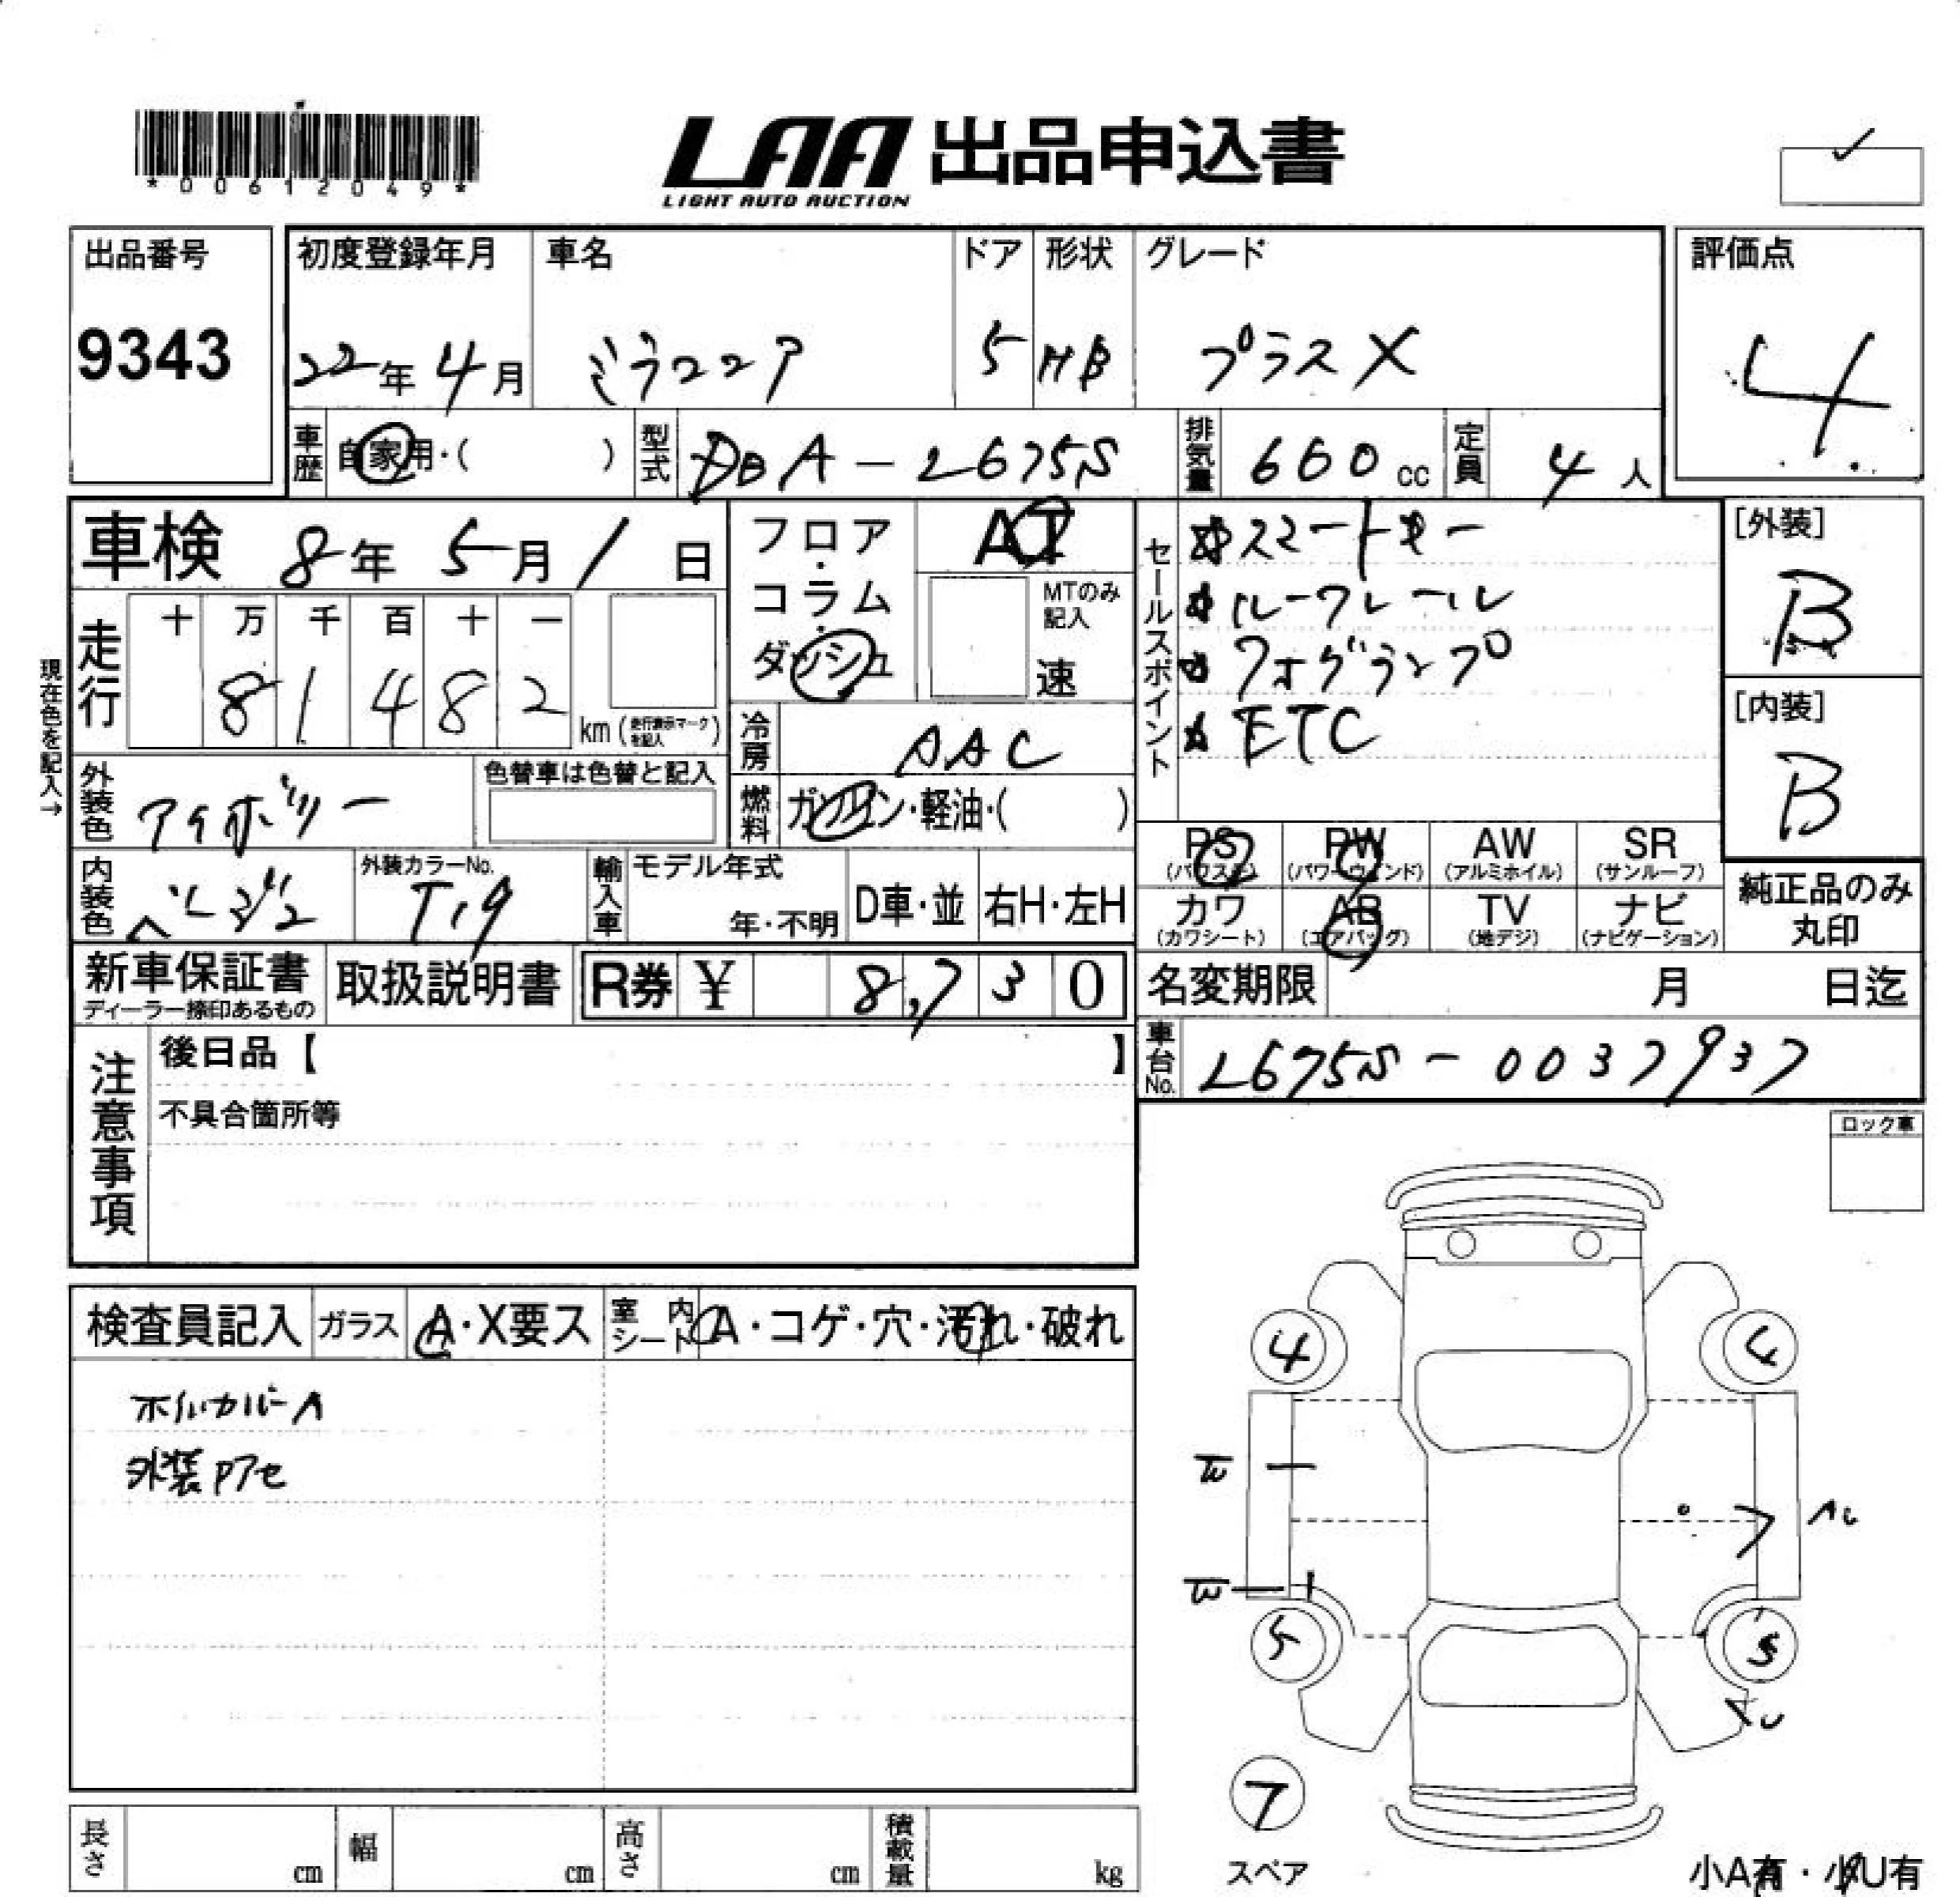 *00612049*
LAA 出品申込書
LIGHT AUTO AUCTION
出品番号
9343
初度登録年月
22年4月
車名
ミラココア
ドア
5
形状
HB
グレード
プラスX
評価点
4
車歴
自家用・( )
型式
DBA-L675S
排気量
660cc
定員
4人
車検 8年5月1日
現在色を記入→
走行
十 万 千 百 十 一
8 1 4 8 2
km(走行表示マークを記入)
フロア・コラム・ダッシュ
AT
MTのみ記入
速
冷房
AAC
燃料
ガソリン・軽油・( )
セールスポイント
スマートキー
ルーフレール
フォグランプ
ETC
[外装]
B
[内装]
B
外装色
アイボリー
色替車は色替と記入
内装色
ベージュ
外装カラーNo.
T19
輸入車
モデル年式
年・不明
D車・並
右H・左H
PS
(パワステ)
PW
(パワーウィンド)
AW
(アルミホイル)
SR
(サンルーフ)
カワ
(カワシート)
AB
(エアバッグ)
TV
(地デジ)
ナビ
(ナビゲーション)
純正品のみ
丸印
新車保証書
ディーラー捺印あるもの
取扱説明書
R券 ¥ 8,730
名変期限
月 日迄
車台No.
L675S-0037937
注意事項
後日品【 】
不具合箇所等
ロック車
検査員記入
ガラス
A・X要ス
室内シート
A・コゲ・穴・汚れ・破れ
ホイルカバーA
外装Pアセ
4
4
W
AU
W
5
5
U
7
スペア
小A有・小U有
長さ
cm
幅
cm
高さ
cm
積載量
kg